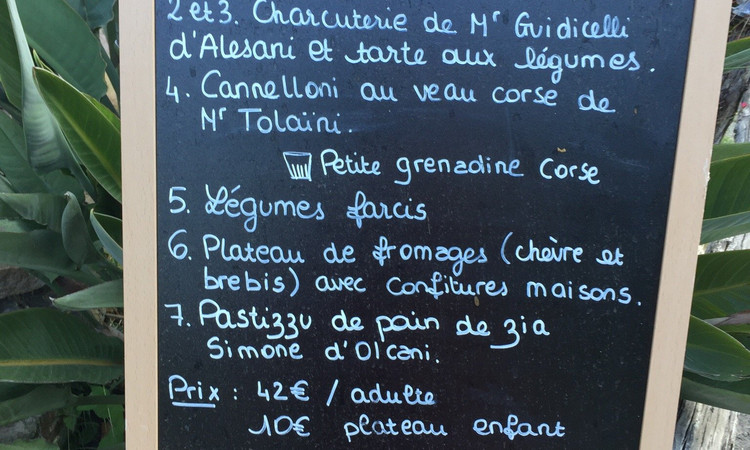 2 et 3. Charcuterie de Mr Guidicelli
d'Alesani et tarte aux légumes.
4. Cannelloni au veau corse de
Mr Tolaïni.
Petite grenadine Corse
5. Légumes farcis
6. Plateau de fromages (chèvre et
brebis) avec confitures maisons.
7. Pastizzu de pain de zia
Simone d'Olcani.
Prix : 42€ / adulte
10€ plateau enfant